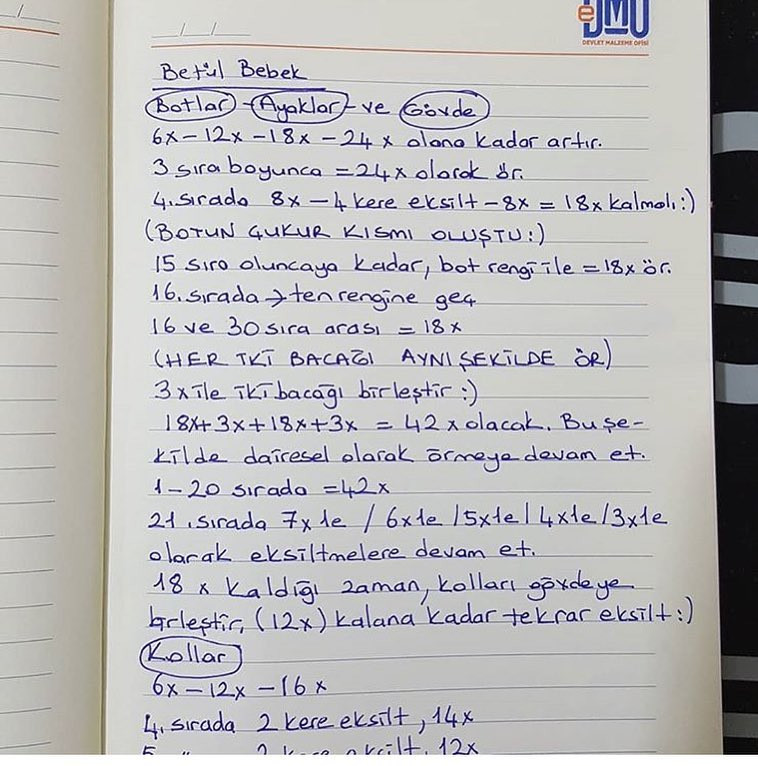 / /
eDMO
DEVLET MALZEME OFİSİ
Betül Bebek
Botlar - Ayaklar - ve Gövde
6x-12x-18x-24x olana kadar artır.
3 sıra boyunca = 24x olarak ör.
4. sırada 8x-4 kere eksilt-8x = 18x kalmalı:)
(BOTUN ÇUKUR KISMI OLUŞTU:)
15 sıra oluncaya kadar, bot rengi ile = 18x ör.
16. sırada → ten rengine geç
16 ve 30 sıra arası = 18x
(HER İKİ BACAĞI AYNI ŞEKİLDE ÖR)
3x ile iki bacağı birleştir :)
18x+3x+18x+3x = 42x olacak. Bu şe-
kilde dairesel olarak örmeye devam et.
1-20 sırada = 42x
21. sırada 7x1e / 6x1e / 5x1e / 4x1e / 3x1e
olarak eksiltmelere devam et.
18 x kaldığı zaman, kolları gövdeye
birleştir, (12x) kalana kadar tekrar eksilt :)
Kollar
6x-12x-16x
4. sırada 2 kere eksilt, 14x
5. " 2 kere eksilt, 12x